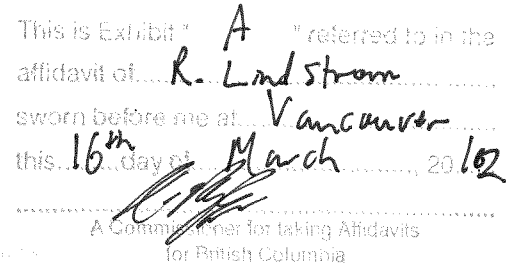 This is Exhibit " A " referred to in the
affidavit of R. Lindstrom
sworn before me at Vancouver
this 16th day of March, 2012
A Commissioner for taking Affidavits
for British Columbia